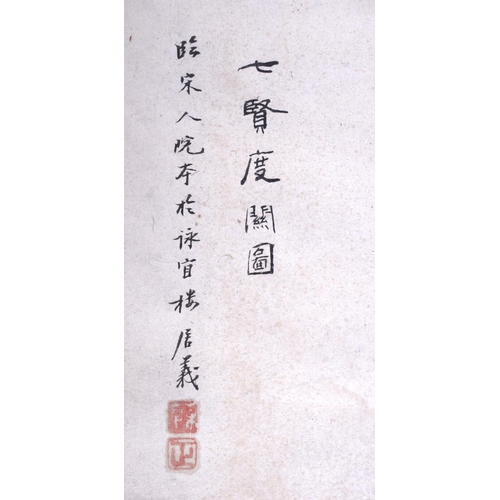 七賢度關圖
臨宋人院本於詠宜樓居義